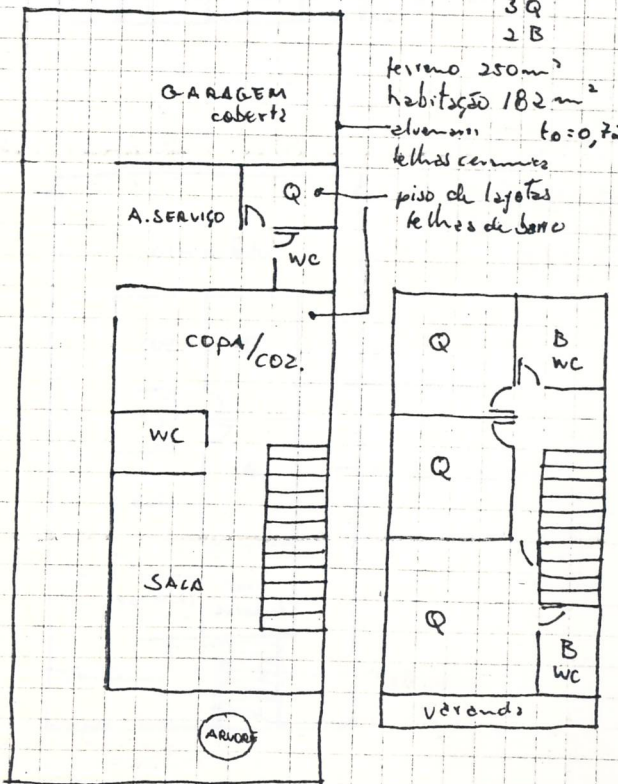 3 Q
2 B
terreno 250m²
habitação 182 m²
alvenaria to=0,72
telhas ceramica
piso de lajotas
telhas de barro
GARAGEM
coberta
Q
A. SERVIÇO
WC
COPA/COZ.
WC
SALA
ARVORE
Q
B
WC
Q
Q
B
WC
varanda